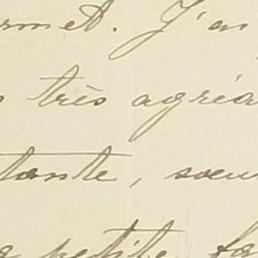 rmet. J'ai
très agréa
tante, sœu
petite fa